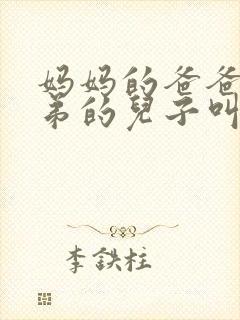 妈妈的爸爸
弟的兒子叫
李鉄柱